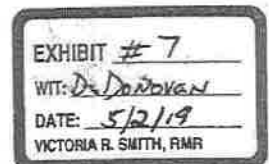 EXHIBIT # 7
WIT: D. DONOVAN
DATE: 5/2/19
VICTORIA R. SMITH, RMR